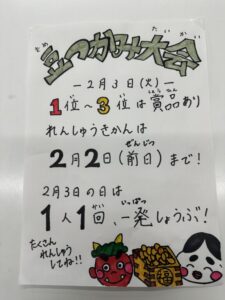 豆つかみ大会
まめ たいかい
ー2月3日(火)ー
1位~3位は賞品あり
い い しょうひん
れんしゅうきかんは
2月2日(前日)まで!
ぜんじつ
2月3日の日は
1人1回、一発しょうぶ!
いっぱつ
たくさん
れんしゅう
してね!!
福